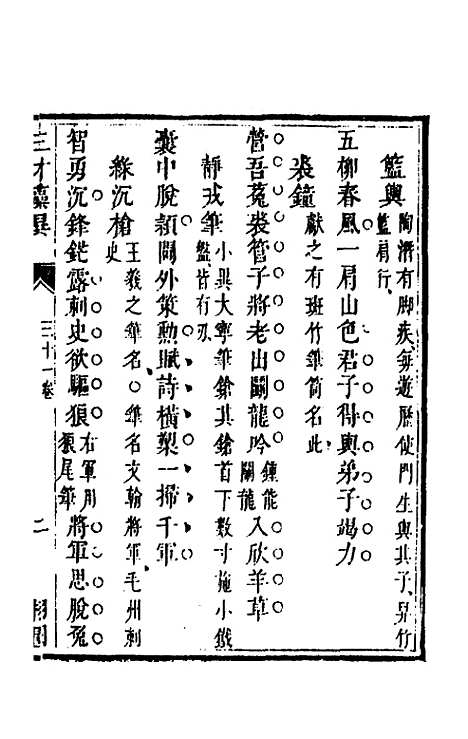 籃輿陶潛有脚疾每遊歷使門生與其子舁竹籃肩行
五柳春風一肩山色君子得輿弟子竭力
裘鐘獻之有班竹筆筒名此
營吾菟裘管子將老山鬬龍吟鍾能鬬龍入欣羊草
靜戎筆小異大寧筆鎗其鎗首下數寸施小鐵鑑皆有刃
囊中脫穎閫外策勲賦詩橫槊一掃千軍
綠沉槍王羲之筆名○筆名文翰將軍毛州刺史
智勇沉鋒鋩露刺史欲驅狼右軍用狼尾筆將軍思脫兔
三才藻異 三十一卷 二